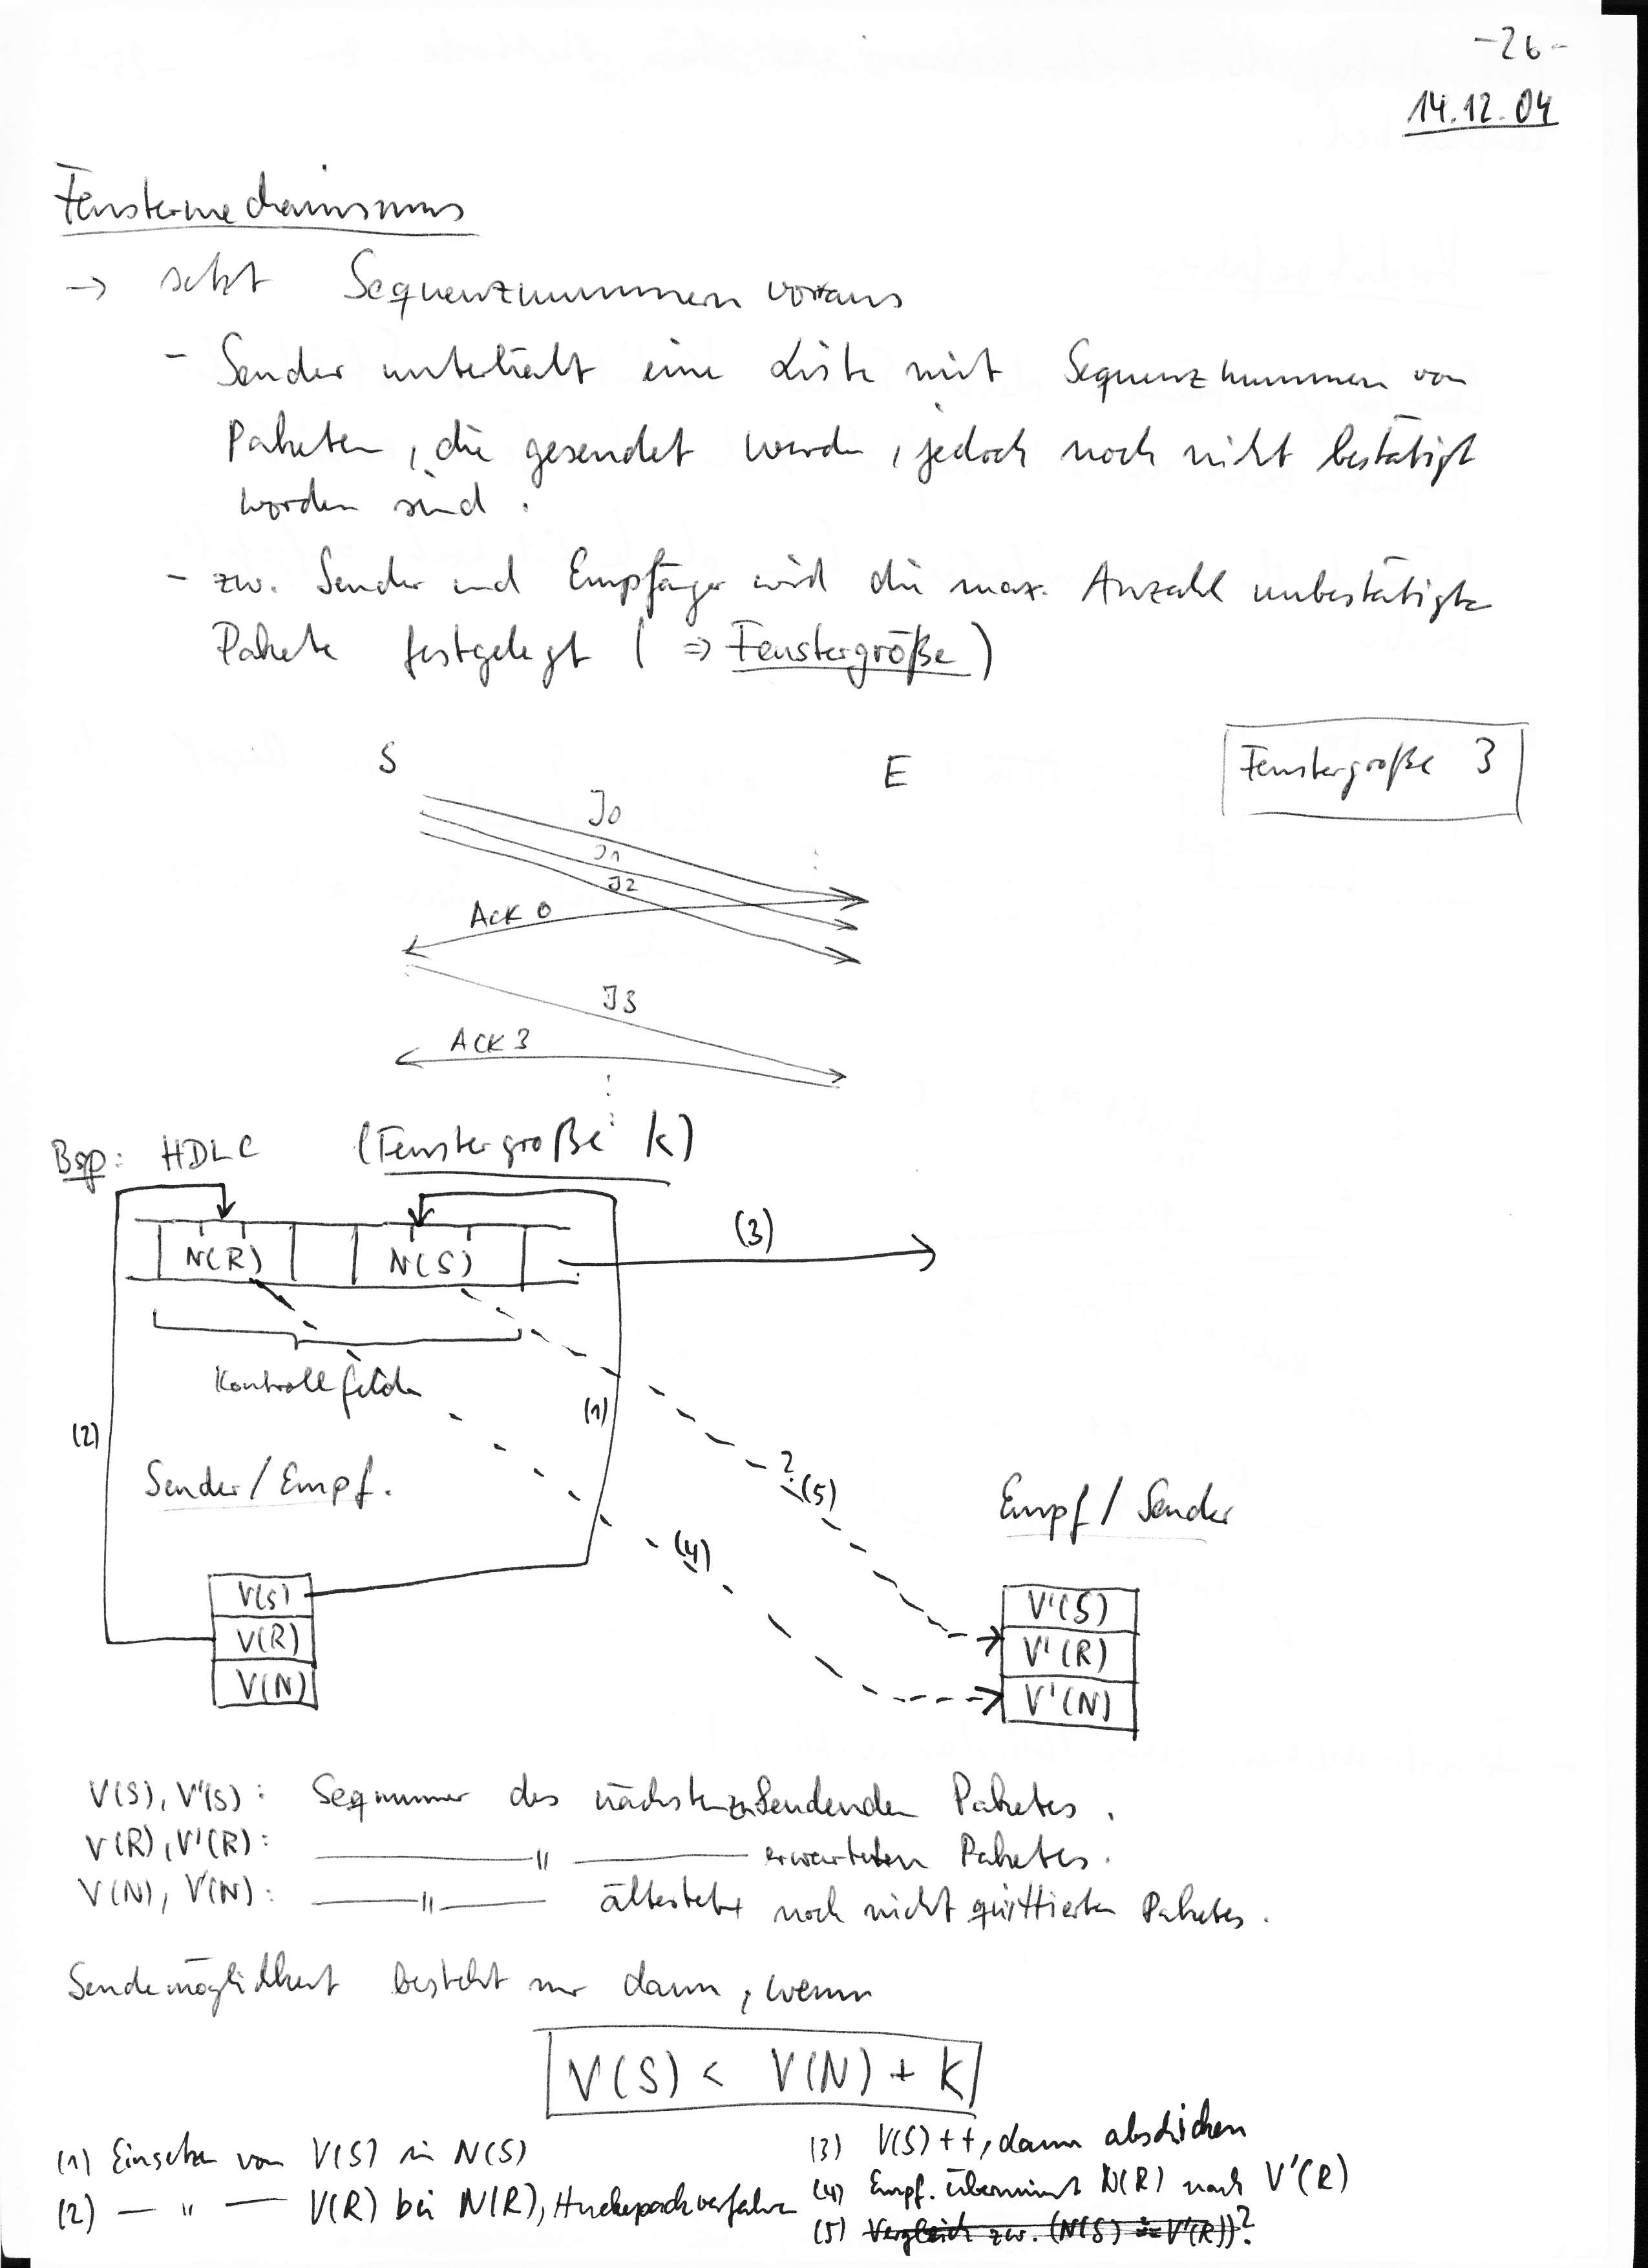 -26-
14.12.04
Fenstermechanismus
→ setzt Sequenznummern voraus
- Sender unterhält eine Liste mit Sequenznummern von
Paketen, die gesendet werden, jedoch noch nicht bestätigt
worden sind.
- zw. Sender und Empfänger wird die max. Anzahl unbestätigte
Pakete festgelegt (⇒ Fenstergröße)
S E
Fenstergröße 3
J0
J1
J2
Ack 0
J3
ACK 3
Bsp: HDLC (Fenstergröße k)
N(R) N(S) (3)
Kontrollfelder
(2) (1)
? (5)
Sender/Empf.
Empf/Sender
(4)
V(S) V'(S)
V(R) V'(R)
V(N) V'(N)
V(S), V'(S): Seqnummer des nächsten zu sendenden Paketes.
V(R), V'(R): —— " —— erwarteten Paketes.
V(N), V'(N): —— " —— ältesten noch nicht quittierten Paketes.
Sendemöglichkeit besteht nur dann, wenn
V(S) < V(N) + k
(1) Einsetzen von V(S) in N(S)
(2) — " — V(R) bei N(R), Huckepackverfahren
(3) V(S)++, dann abschicken
(4) Empf. übernimmt N(R) nach V'(R)
(5) Vergleich zw. (N(S) == V'(R))?